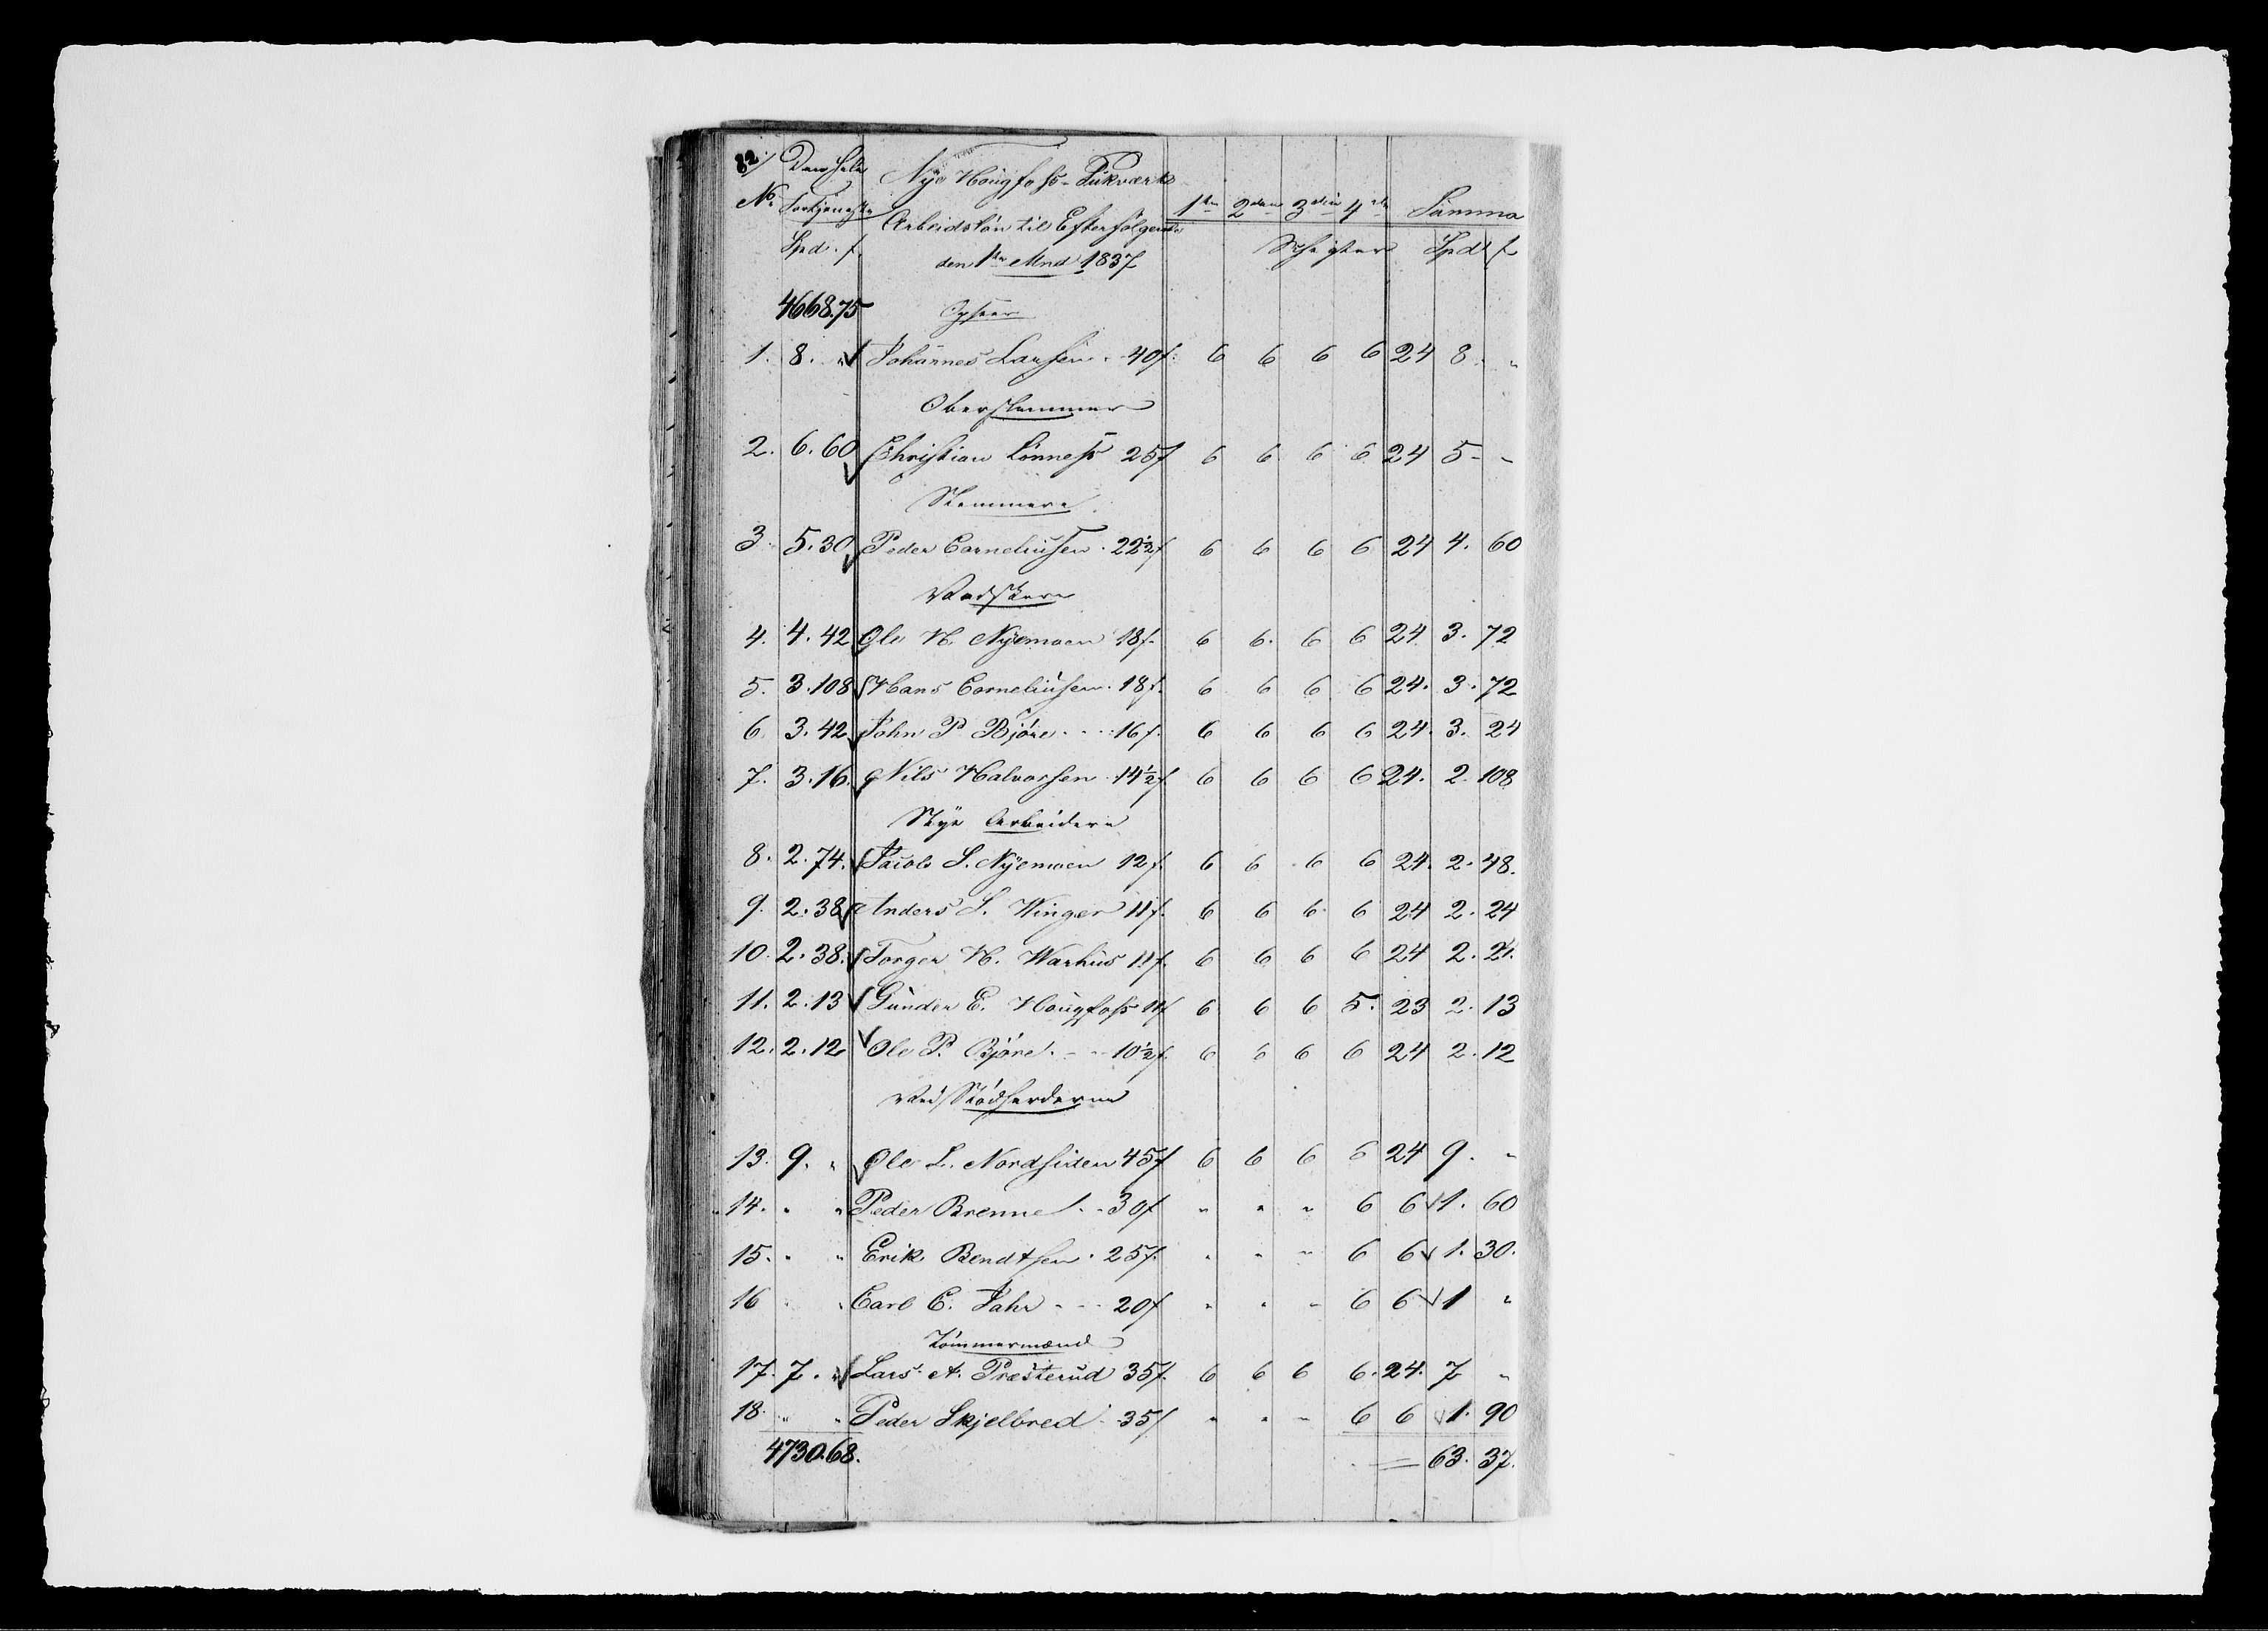 82/ Den hele Nÿe Hougfoss Pukværks
No Fortjeneste Arbeidslön til Efterfölgende 1ste 2den 3die 4de Summa
Spd. f. den 1ste Mnd 1837 Schichter Spd f
4668.75 Opseer
1. 8. " Johannes Larsen 40f. 6 6 6 6 24 8. "
Oberslemmer
2. 6.60 Christian Lönness 25f 6 6 6 6 24 5 - -
Slemmere
3. 5.30 Peder Corneliusen. 22½f 6 6 6 6 24 4. 60
Vadskere
4. 4.42 Ole H. Nÿemoen 18f. 6 6. 6 6 24 3. 72
5. 3.108 Hans Corneliusen. 18f. 6 6 6 6 24. 3. 72
6 3.42 John P Björe 16f. 6 6 6 6 24. 3. 24
7. 3.16. Nils Halvorsen 14½f. 6 6 6 6 24. 2. 108
Nÿe Arbeidere
8. 2.74. Jacob S. Nÿemoen 12f. 6 6 6 6 24. 2. 48.
9. 2.38 Anders S. Winger 11f. 6 6 6. 6 24 2. 24
10. 2.38. Torger H. Warhus 11f. 6 6 6 6 24 2. 24.
11. 2.13 Gunder E. Hougfoss 11f 6 6 6 5. 23 2. 13
12. 2.12 Ole P. Björe 10½f. 6 6 6 6 24 2. 12
Ved Stödherderne
13. 9. " Ole L. Nordsiden 45f 6 6 6 6 24 9. "
14. " " Peder Brenne 30f " " " 6 6 1. 60
15. " " Erik Bendtsen. 25f. " " " 6 6 1. 30.
16 " " Carl C. Jahr 20f " " " 6 6 1 "
Tömmermænd
17. 7. " Lars A. Præsterud 35f. 6 6 6 6. 24. 7 "
18. " " Peder Skjelbred 35f " " " 6 6 1. 90
4730.68. 63. 37.